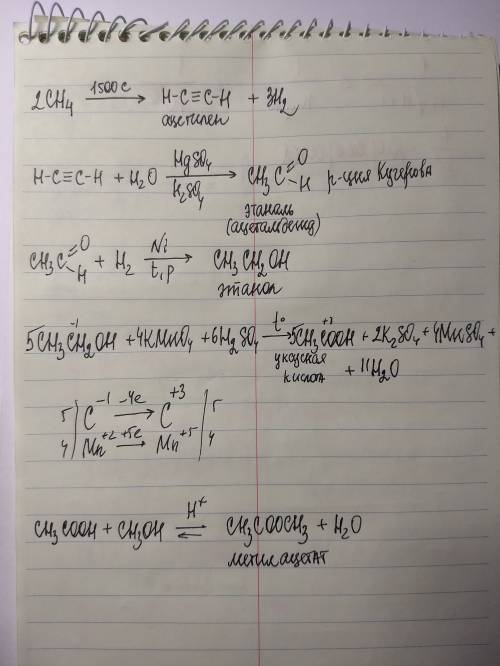 2CH₄ 1500 C → H-C≡C-H + 3H₂
ацетилен
H-C≡C-H + H₂O HgSO₄ / H₂SO₄ → CH₃C =O -H р-ция Кучерова
этаналь
(ацетальдегид)
CH₃C =O -H + H₂ Ni / t, p → CH₃CH₂OH
этанол
5CH₃C⁻¹H₂OH + 4KMnO₄ + 6H₂SO₄ t° → 5CH₃C⁺³OOH + 2K₂SO₄ + 4MnSO₄ +
уксусная
кислота + 11H₂O
5 | C⁻¹ -4e → C⁺³ | 5
4 | Mn⁺² +5e → Mn⁺⁵ | 4
CH₃COOH + CH₃OH H⁺ ⇌ CH₃COOCH₃ + H₂O
метилацетат